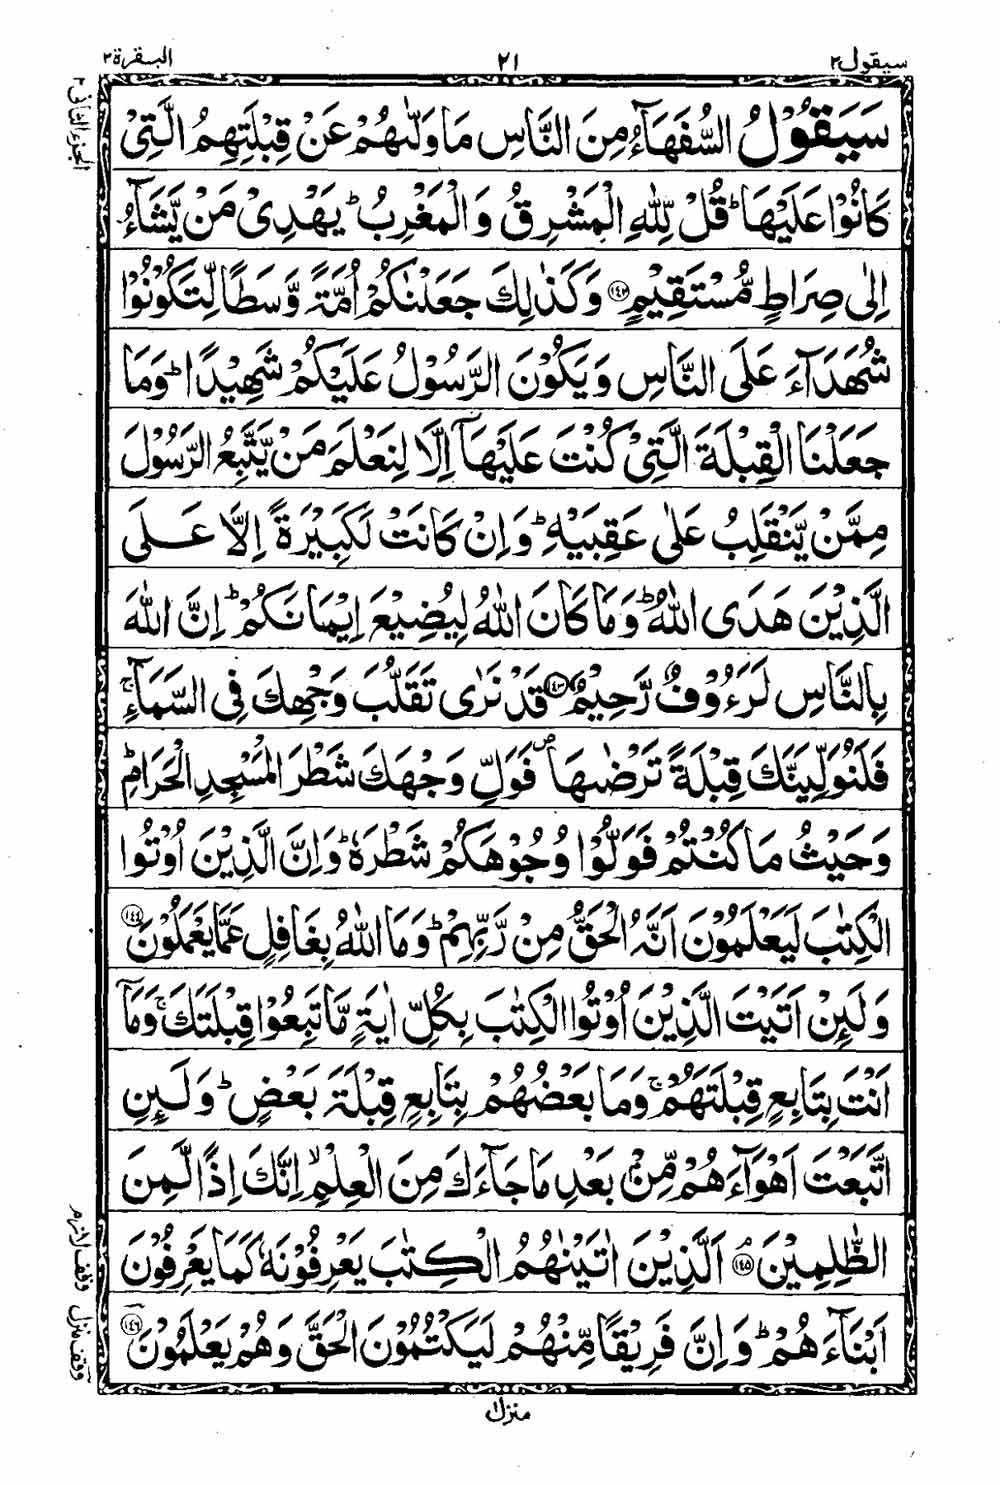 سيقول ٢
٢١
البقرة ٢
الجزء الثانی ٢
سَيَقُوْلُ السُّفَهَآءُ مِنَ النَّاسِ مَا وَلّٰىهُمْ عَنْ قِبْلَتِهِمُ الَّتِیْ
كَانُوْا عَلَيْهَا ؕ قُلْ لِّلّٰهِ الْمَشْرِقُ وَالْمَغْرِبُ ؕ يَهْدِیْ مَنْ يَّشَآءُ
اِلٰی صِرَاطٍ مُّسْتَقِيْمٍ ﴿۱۴۲﴾ وَكَذٰلِكَ جَعَلْنٰكُمْ اُمَّةً وَّسَطًا لِّتَكُوْنُوْا
شُهَدَآءَ عَلَی النَّاسِ وَيَكُوْنَ الرَّسُوْلُ عَلَيْكُمْ شَهِيْدًا ؕ وَمَا
جَعَلْنَا الْقِبْلَةَ الَّتِیْ كُنْتَ عَلَيْهَآ اِلَّا لِنَعْلَمَ مَنْ يَّتَّبِعُ الرَّسُوْلَ
مِمَّنْ يَّنْقَلِبُ عَلٰی عَقِبَيْهِ ؕ وَاِنْ كَانَتْ لَكَبِيْرَةً اِلَّا عَلَی
الَّذِيْنَ هَدَی اللّٰهُ ؕ وَمَا كَانَ اللّٰهُ لِيُضِيْعَ اِيْمَانَكُمْ ؕ اِنَّ اللّٰهَ
بِالنَّاسِ لَرَءُوْفٌ رَّحِيْمٌ ﴿۱۴۳﴾ قَدْ نَرٰی تَقَلُّبَ وَجْهِكَ فِی السَّمَآءِ ۚ
فَلَنُوَلِّيَنَّكَ قِبْلَةً تَرْضٰىهَا ۪ فَوَلِّ وَجْهَكَ شَطْرَ الْمَسْجِدِ الْحَرَامِ ؕ
وَحَيْثُ مَا كُنْتُمْ فَوَلُّوْا وُجُوْهَكُمْ شَطْرَهٗ ؕ وَاِنَّ الَّذِيْنَ اُوْتُوا
الْكِتٰبَ لَيَعْلَمُوْنَ اَنَّهُ الْحَقُّ مِنْ رَّبِّهِمْ ؕ وَمَا اللّٰهُ بِغَافِلٍ عَمَّا يَعْمَلُوْنَ ﴿۱۴۴﴾
وَلَىِٕنْ اَتَيْتَ الَّذِيْنَ اُوْتُوا الْكِتٰبَ بِكُلِّ اٰيَةٍ مَّا تَبِعُوْا قِبْلَتَكَ ۚ وَمَآ
اَنْتَ بِتَابِعٍ قِبْلَتَهُمْ ۚ وَمَا بَعْضُهُمْ بِتَابِعٍ قِبْلَةَ بَعْضٍ ؕ وَلَىِٕنِ
اتَّبَعْتَ اَهْوَآءَهُمْ مِّنْۢ بَعْدِ مَا جَآءَكَ مِنَ الْعِلْمِ ۙ اِنَّكَ اِذًا لَّمِنَ
الظّٰلِمِيْنَ ﴿۱۴۵﴾ۘ اَلَّذِيْنَ اٰتَيْنٰهُمُ الْكِتٰبَ يَعْرِفُوْنَهٗ كَمَا يَعْرِفُوْنَ
اَبْنَآءَهُمْ ؕ وَاِنَّ فَرِيْقًا مِّنْهُمْ لَيَكْتُمُوْنَ الْحَقَّ وَهُمْ يَعْلَمُوْنَ ﴿۱۴۶﴾
وقف لازم
وقف منزل
منزل ١